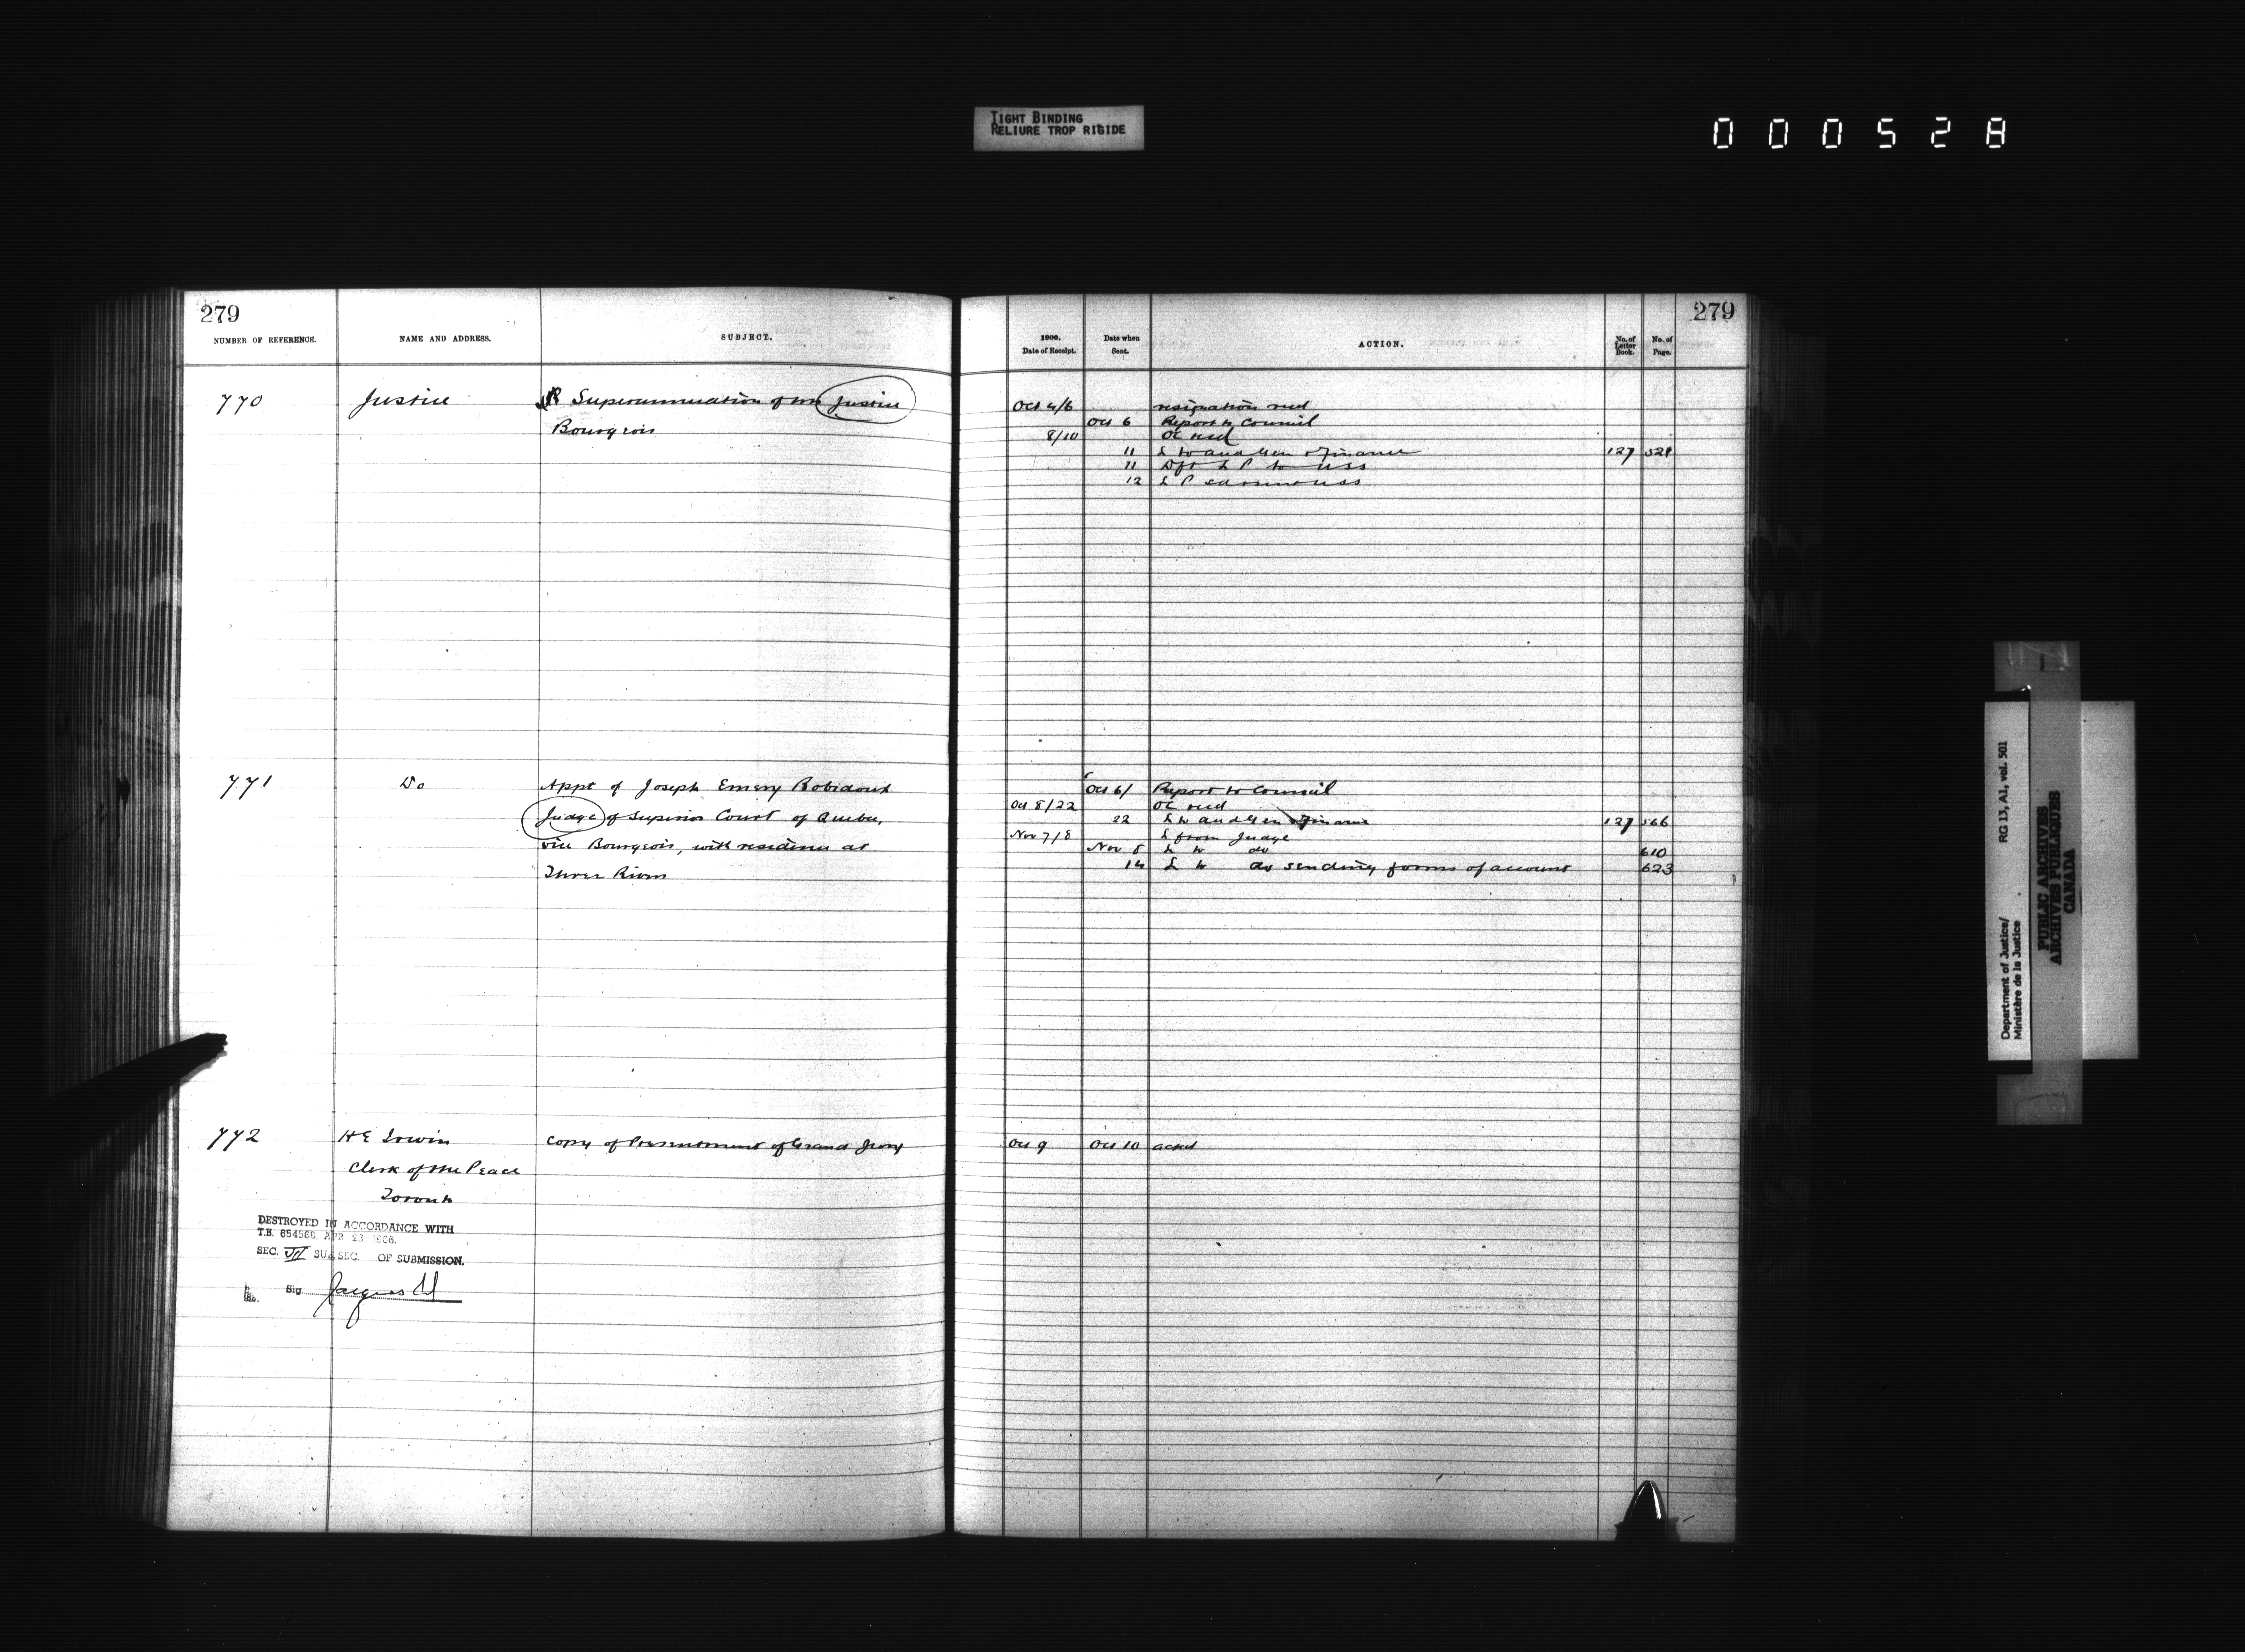 TIGHT BINDING
RELIURE TROP RIGIDE
000528
279
NUMBER OF REFERENCE.
NAME AND ADDRESS.
SUBJECT.
770
Justice
Superannuation of Mr Justice
Bourgeois
771
Do
Appt of Joseph Emery Robidoux
Judge of Superior Court of Quebec,
vice Bourgeois, with residence at
Three Rivers
772
H E Irwin
Clerk of the Peace
Toronto
Copy of Presentment of Grand Jury
DESTROYED IN ACCORDANCE WITH
T.B. 654566 APR 23
SEC. VII SUB SEC. OF SUBMISSION.
Sig
279
1900.
Date of Receipt.
Date when
Sent.
ACTION.
No. of
Letter
Book.
No. of
Page.
Oct 4/6 resignation recd
Oct 6 Report to Council
8/10 OC recd
11 L to aud Gen & Finance 127
11 Dft L P to USS
12 L P USS
Oct 6/ Report to Council
Oct 8/22 OC recd
22 L to aud Gen & Finance 127 566
Nov 7/8 L from Judge
Nov 8 L to do 610
14 L to do sending forms of account 623
Oct 9 Oct 10 ackd
Department of Justice/
Ministère de la Justice
RG 13, A1, vol. 501
PUBLIC ARCHIVES
ARCHIVES PUBLIQUES
CANADA